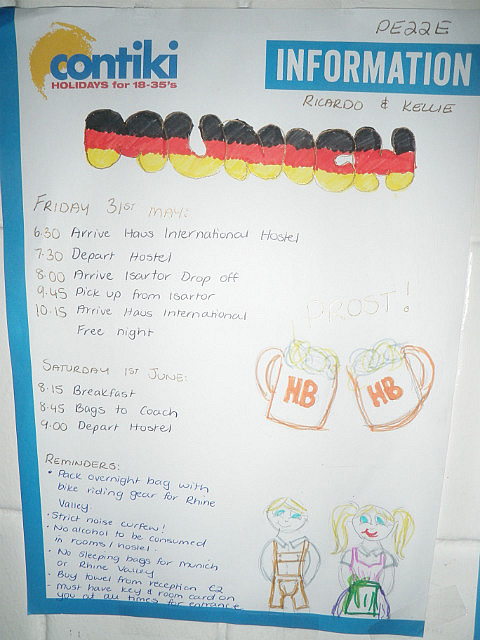 PE22E
contiki
HOLIDAYS for 18-35's
INFORMATION
RICARDO & KELLIE
MUNICH
FRIDAY 31ST MAY:
6.30 Arrive Haus International Hostel
7.30 Depart Hostel
8.00 Arrive Isartor Drop off
9.45 Pick up from Isartor
10.15 Arrive Haus International
Free night
PROST!
HB HB
SATURDAY 1ST JUNE:
8.15 Breakfast
8.45 Bags to Coach
9.00 Depart Hostel
REMINDERS:
• Pack overnight bag with
bike riding gear for Rhine
Valley.
• Strict noise curfew!
• No alcohol to be consumed
in rooms/hostel.
• No sleeping bags for Munich
or Rhine Valley
• Buy towel from reception €2
• must have key & room card on
you at all times for entrance